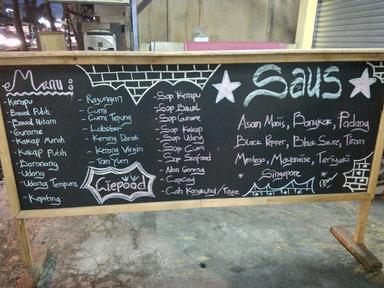 Menu :
- Kerapu
- Bawal Putih
- Bawal Hitam
- Gurame
- Kakap Merah
- Kakap Putih
- Baronang
- Udang
- Udang Tempura
- Kepiting
- Rajungan
- Cumi
- Cumi Tepung
- Lobster
- Kerang Darah
- Kerang Virgin
- Tom Yum
Ciepood
- Sop Kerapu
- Sop Bawal
- Sop Gurame
- Sop Kakap
- Sop Udang
- Sop Cumi
- Sop Seafood
- Nasi Goreng
- Capcay
- Cah Kangkung / Toge
Saus
Asam Manis, Bangkok, Padang
Black Pepper, Black Sauce, Tiram
Mentega, Mayonaise, Teriyaki
Singapore